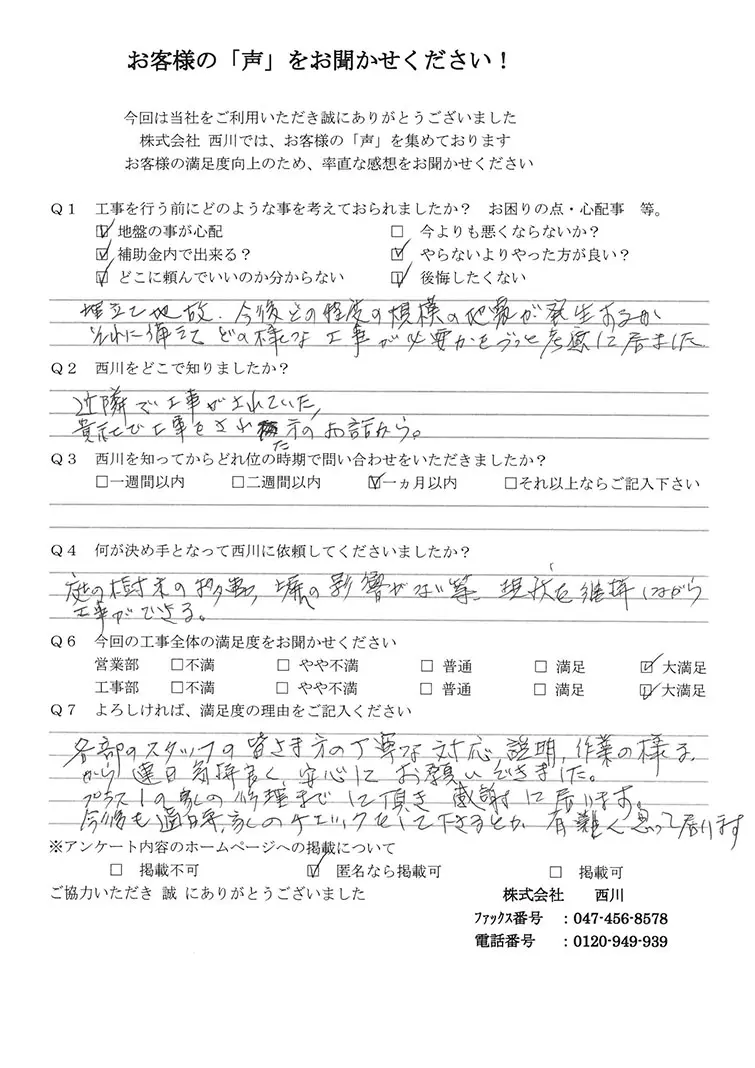 お客様の「声」をお聞かせください！
今回は当社をご利用いただき誠にありがとうございました
株式会社 西川では、お客様の「声」を集めております
お客様の満足度向上のため、率直な感想をお聞かせください
Ｑ１　工事を行う前にどのような事を考えておられましたか？　お困りの点・心配事　等。
☑ 地盤の事が心配　□ 今よりも悪くならないか？
☑ 補助金内で出来る？　☑ やらないよりやった方が良い？
☑ どこに頼んでいいのか分からない　☑ 後悔したくない
埋立て地故、今後どの程度の規模の地震が発生するか
それに備えて どの様な 工事が必要かをずっと考慮して居ました
Ｑ２　西川をどこで知りましたか？
近隣で工事がされていた，
貴社で工事をされた方のお話から。
Ｑ３　西川を知ってからどれ位の時期で問い合わせをいただきましたか？
□一週間以内　□二週間以内　☑一ヵ月以内　□それ以上ならご記入下さい
Ｑ４　何が決め手となって西川に依頼してくださいましたか？
庭の樹木の移動，塀への影響がない等 現状を維持しながら
工事ができる。
Ｑ６　今回の工事全体の満足度をお聞かせください
営業部　□不満　□ やや不満　□ 普通　□ 満足　☑ 大満足
工事部　□不満　□ やや不満　□ 普通　□ 満足　☑ 大満足
Ｑ７　よろしければ、満足度の理由をご記入ください
各部のスタッフの皆さま方の丁寧な対応，説明，作業の様子
から 連日気持良く，安心に お願いできました。
プラス１の 修理までして頂き 感謝して居ります。
今後も のチェックをして下さるとか 有難く思って居ります
※アンケート内容のホームページへの掲載について
□ 掲載不可　☑ 匿名なら掲載可　□ 掲載可
ご協力いただき 誠 にありがとうございました　株式会社　西川
ﾌｧｯｸｽ番号　：047-456-8578
電話番号　：0120-949-939